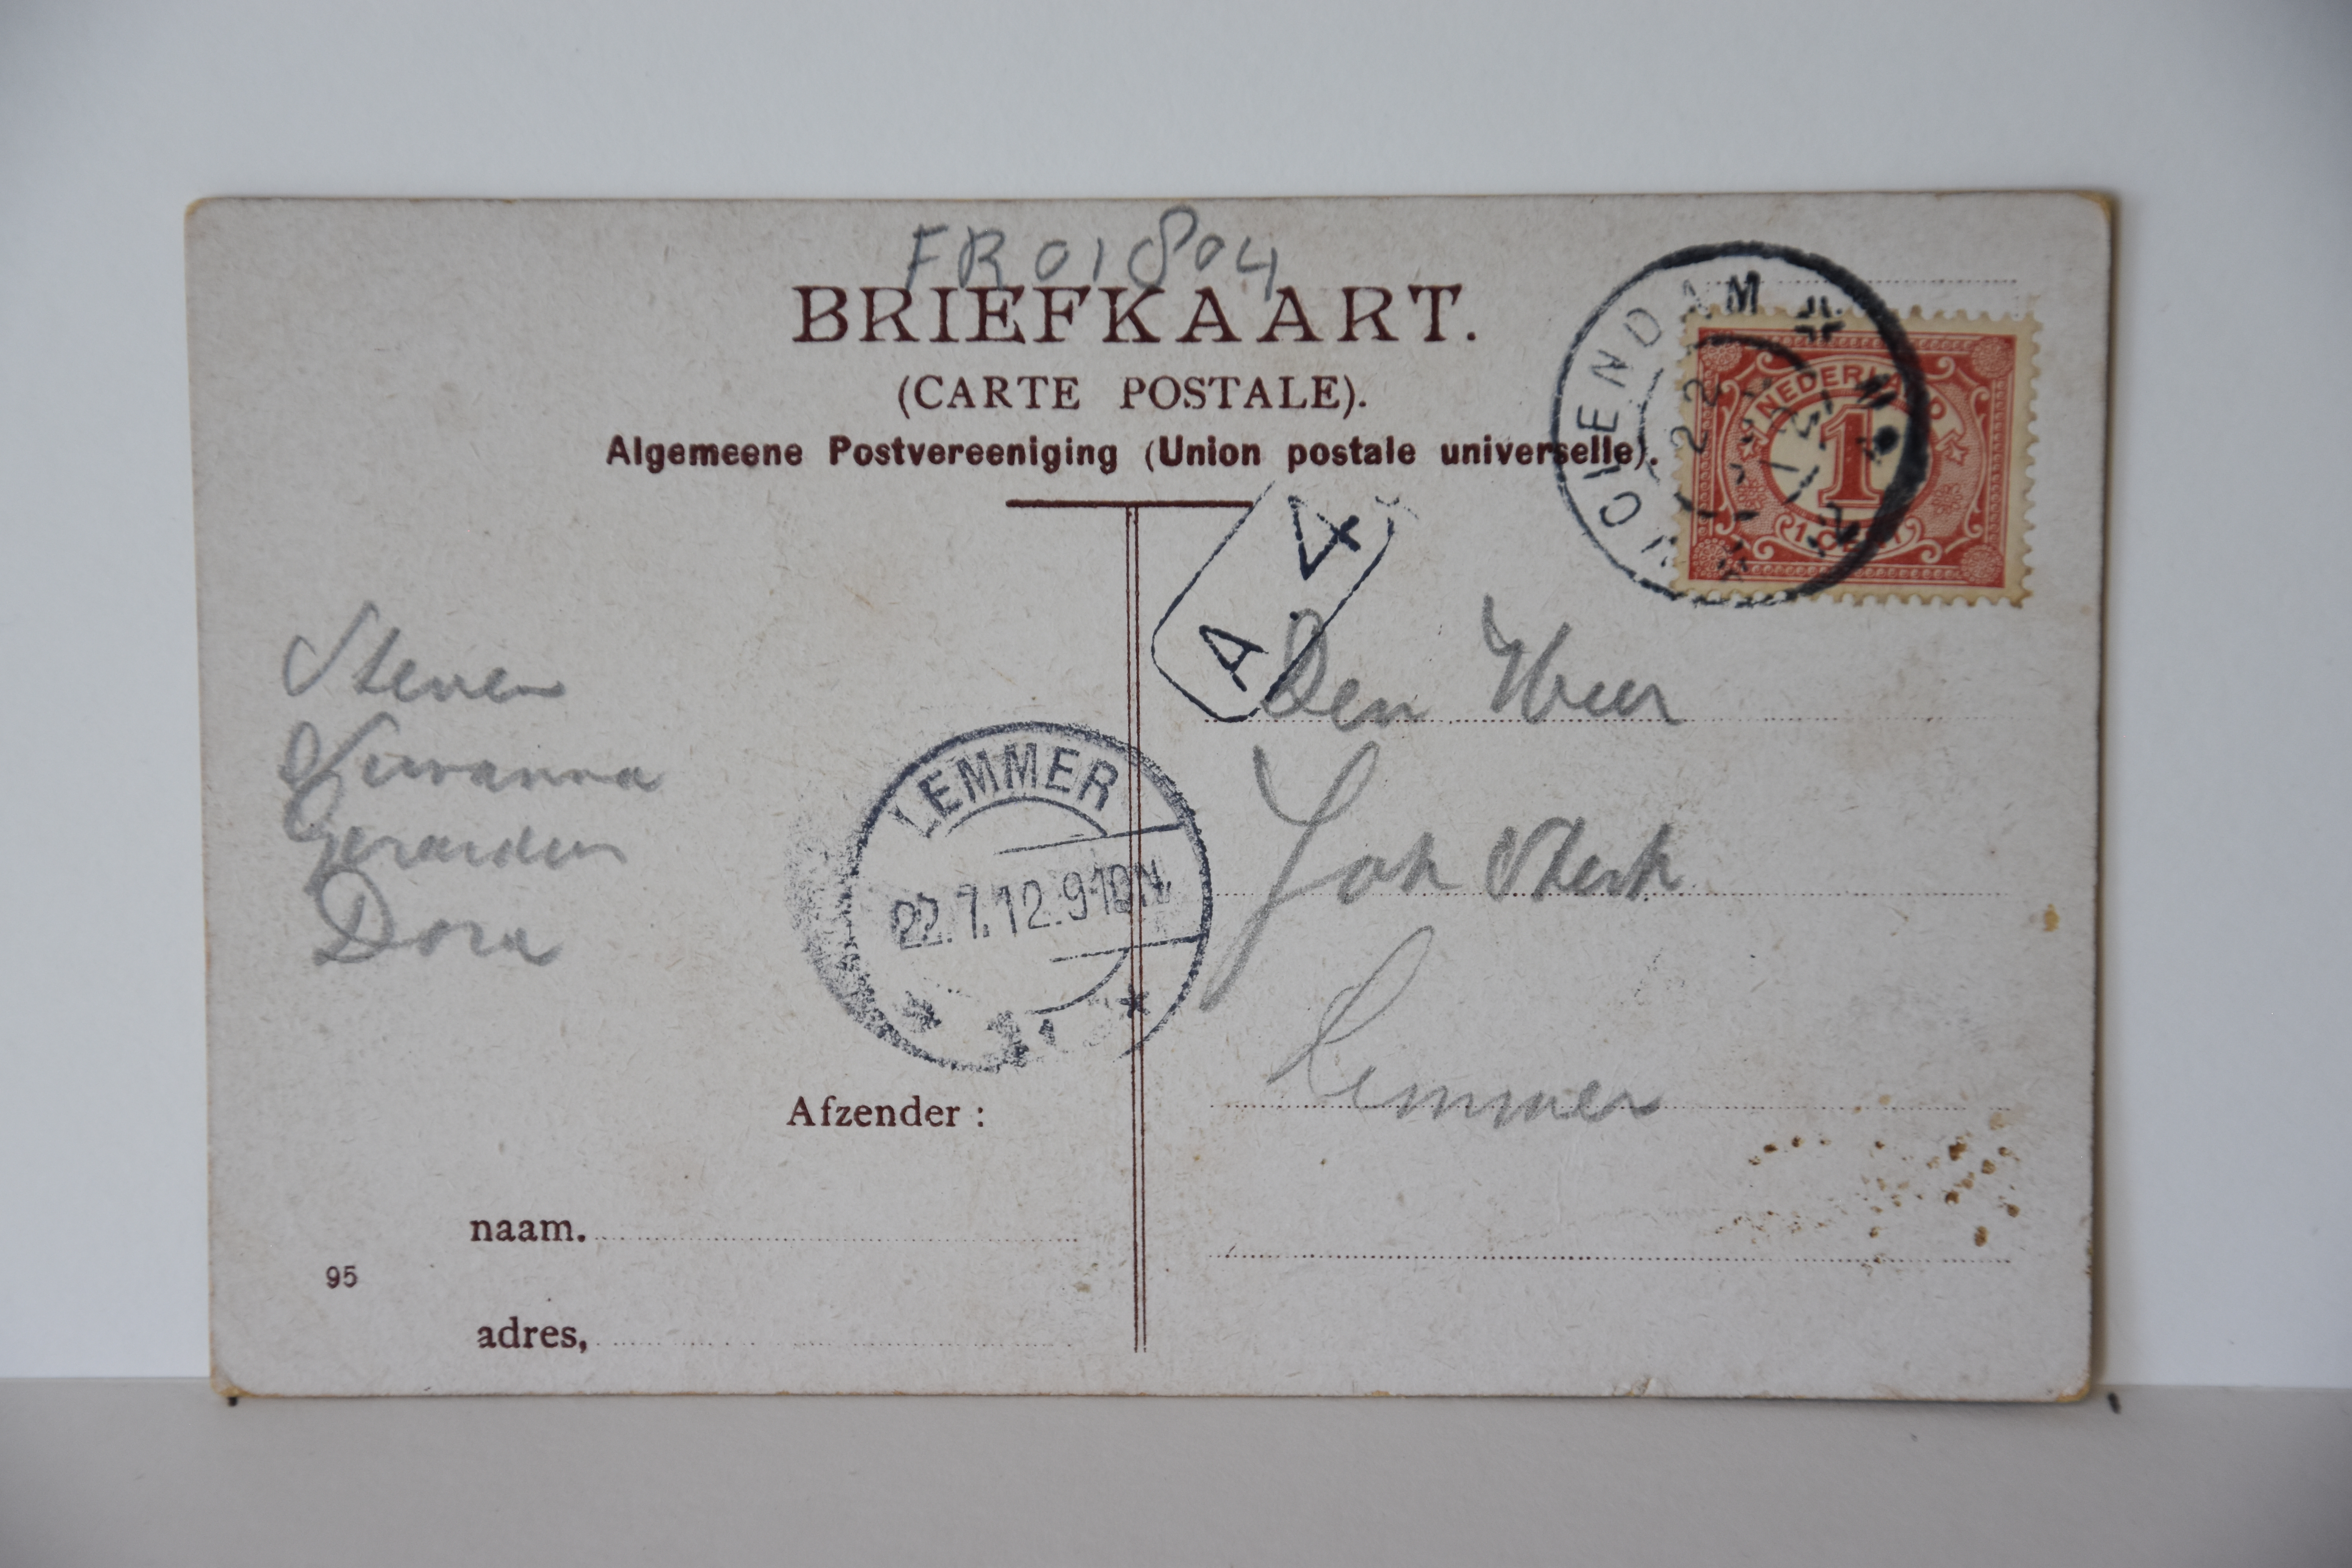 FR01804
BRIEFKAART.
(CARTE POSTALE).
Algemeene Postvereeniging (Union postale universelle).
NEDERLAND
1
1 CENT
A. 4
Steven
Susanna
Gerardus
Dora
LEMMER
22.7.12.9-10N
Den Heer
Joh Sterk
Lemmer
Afzender :
naam.
95
adres,